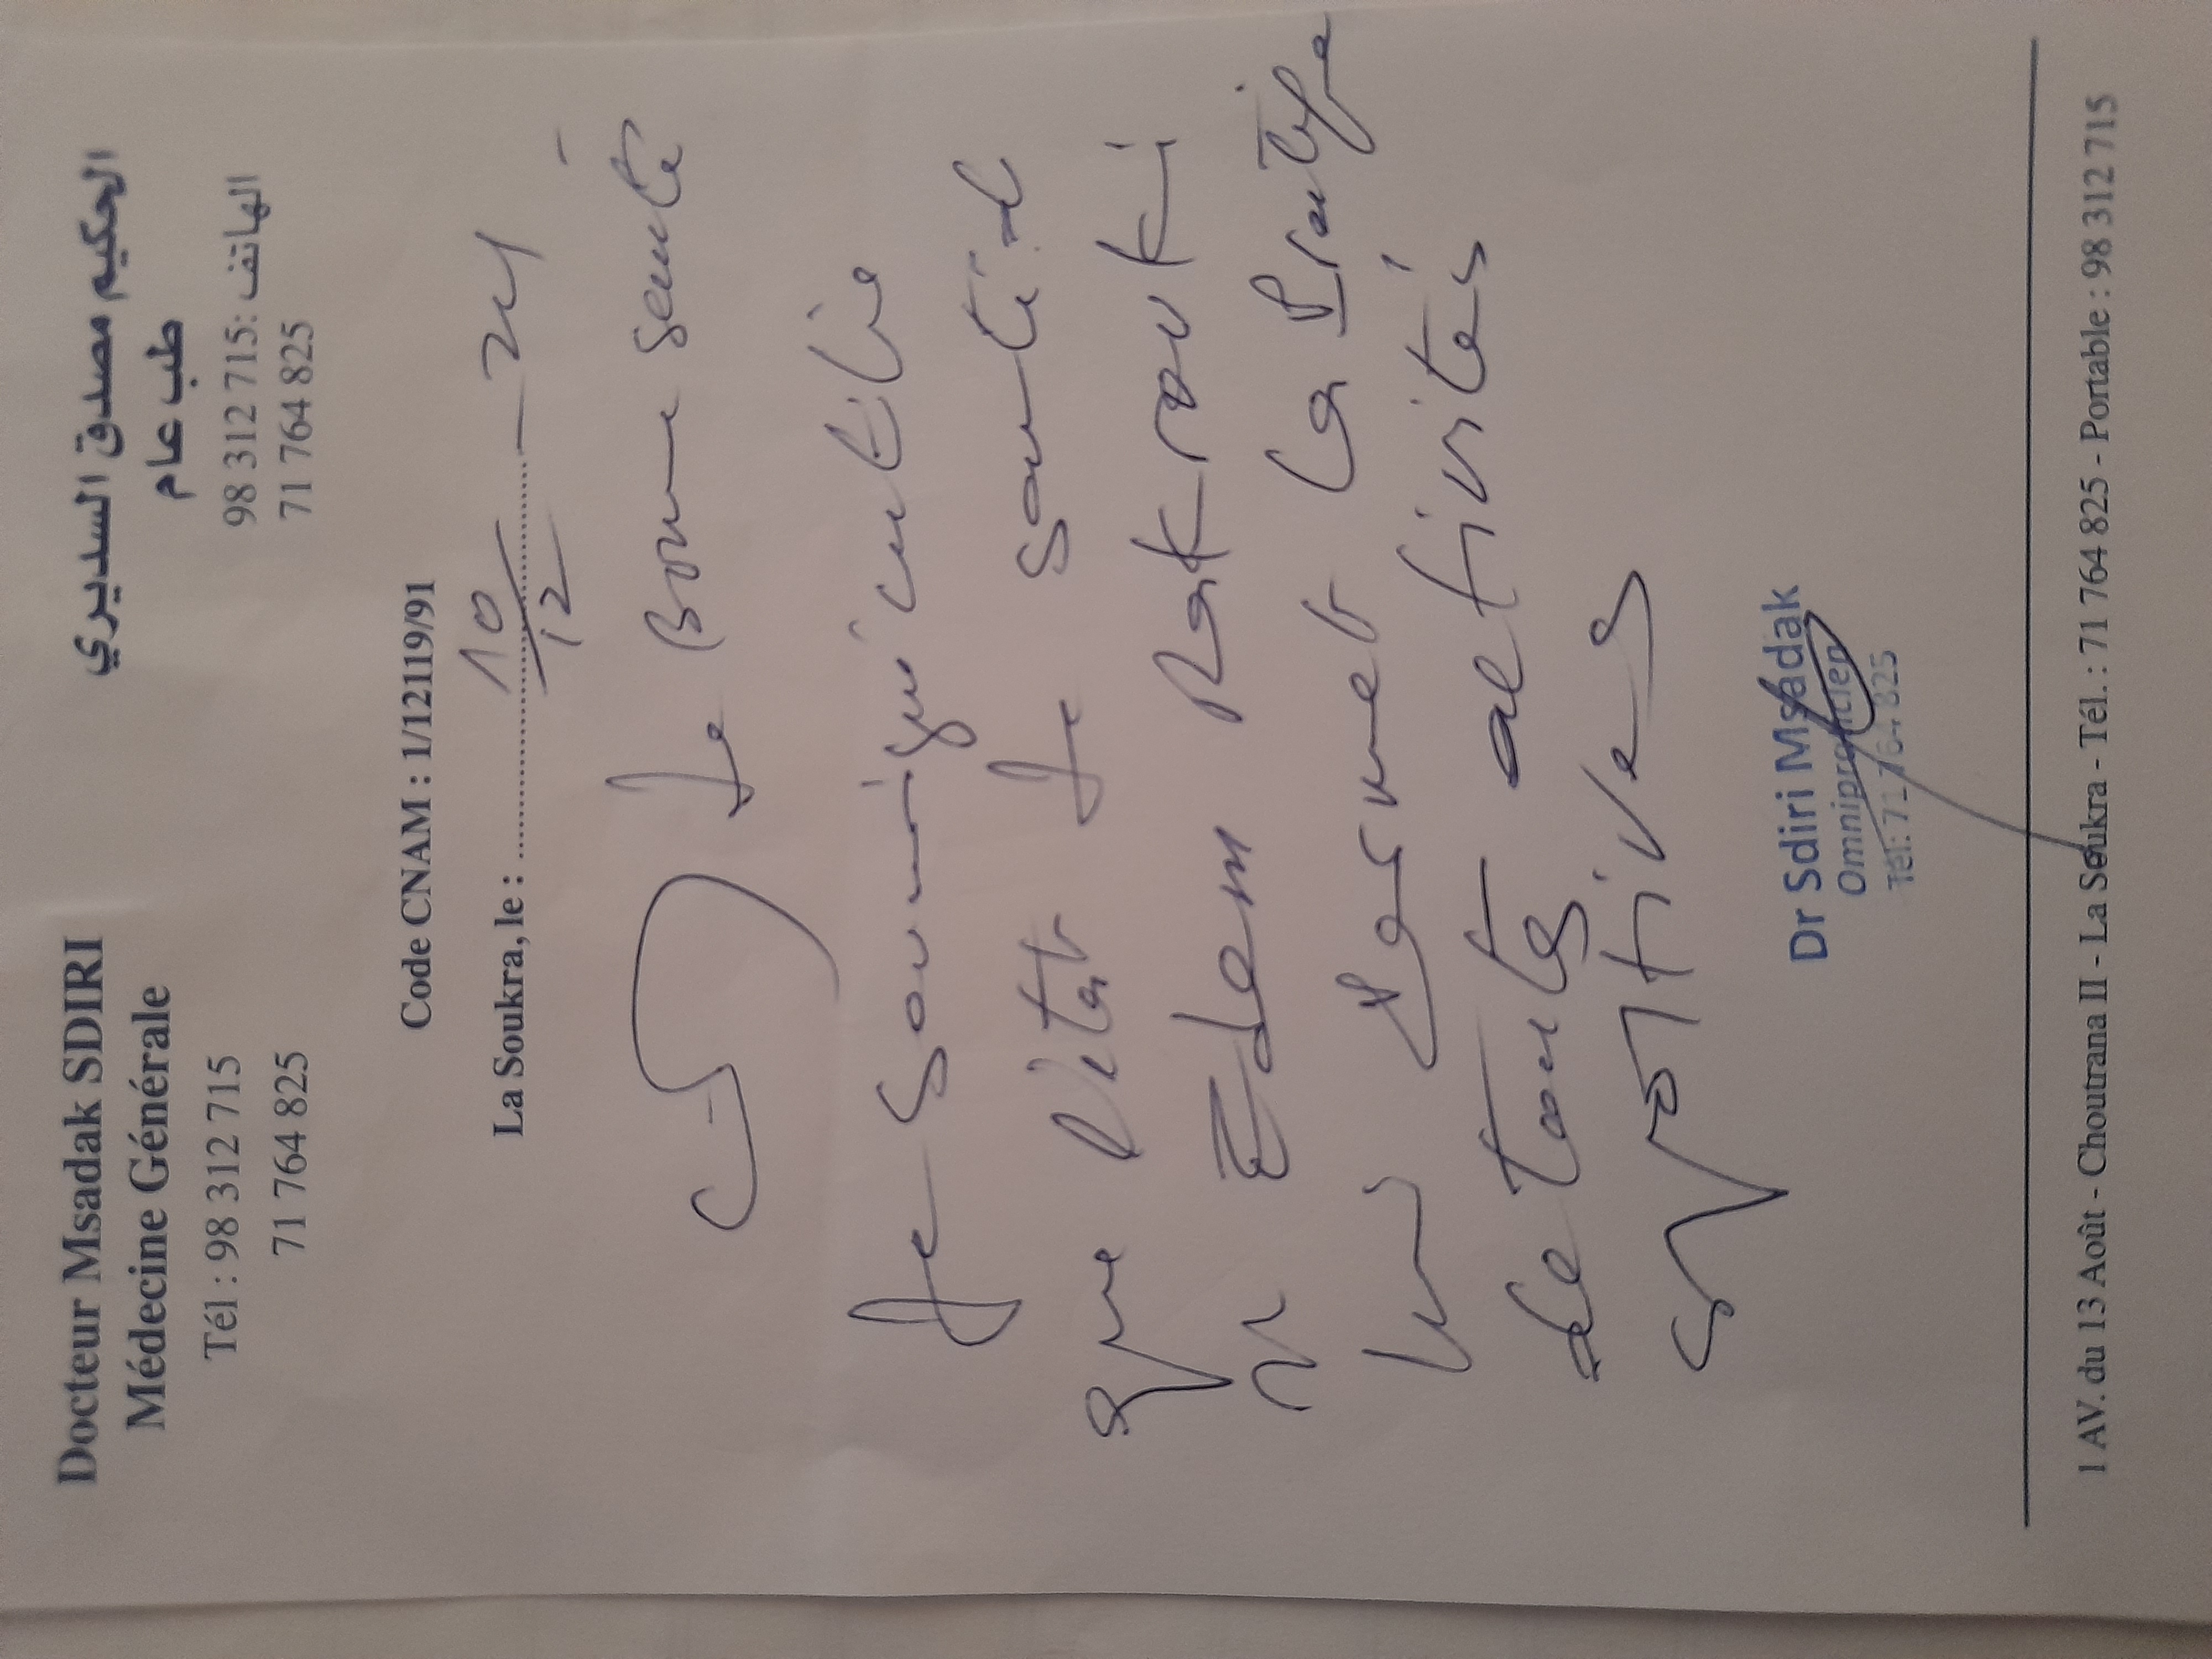 Docteur Msadak SDIRI
Médecine Générale
Tél : 98 312 715
71 764 825
الحكيم مصدق السديري
طب عام
الهاتف: 98 312 715
71 764 825
Code CNAM : 1/12119/91
La Soukra, le : 10/12 - 24
de Bonne Santé
Je Soussigné certifie
que l'état de santé d
Edem Rakrouki
lui Permet la Pratique
de toutes activités
sportives
Dr Sdiri Msadak
Omnipraticien
Tél: 71 764 825
1 AV. du 13 Août - Choutrana II - La Soukra - Tél. : 71 764 825 - Portable : 98 312 715